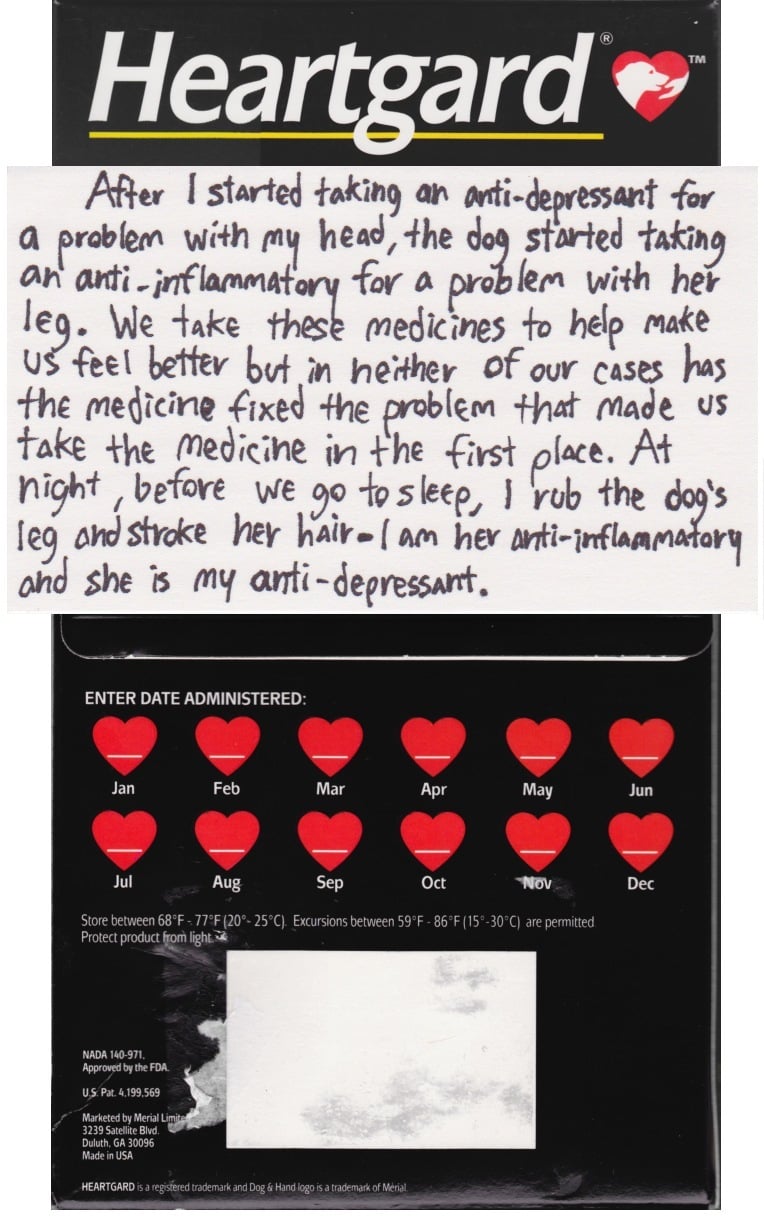 Heartgard® ™
After I started taking an anti-depressant for
a problem with my head, the dog started taking
an anti-inflammatory for a problem with her
leg. We take these medicines to help make
us feel better but in neither of our cases has
the medicine fixed the problem that made us
take the medicine in the first place. At
night, before we go to sleep, I rub the dog's
leg and stroke her hair-I am her anti-inflammatory
and she is my anti-depressant.
ENTER DATE ADMINISTERED:
Jan Feb Mar Apr May Jun
Jul Aug Sep Oct Nov Dec
Store between 68°F - 77°F (20°- 25°C). Excursions between 59°F - 86°F (15°-30°C) are permitted
Protect product from light.
NADA 140-971,
Approved by the FDA.
U.S. Pat. 4,199,569
Marketed by Merial Limite
3239 Satellite Blvd.
Duluth, GA 30096
Made in USA
HEARTGARD is a registered trademark and Dog & Hand logo is a trademark of Merial